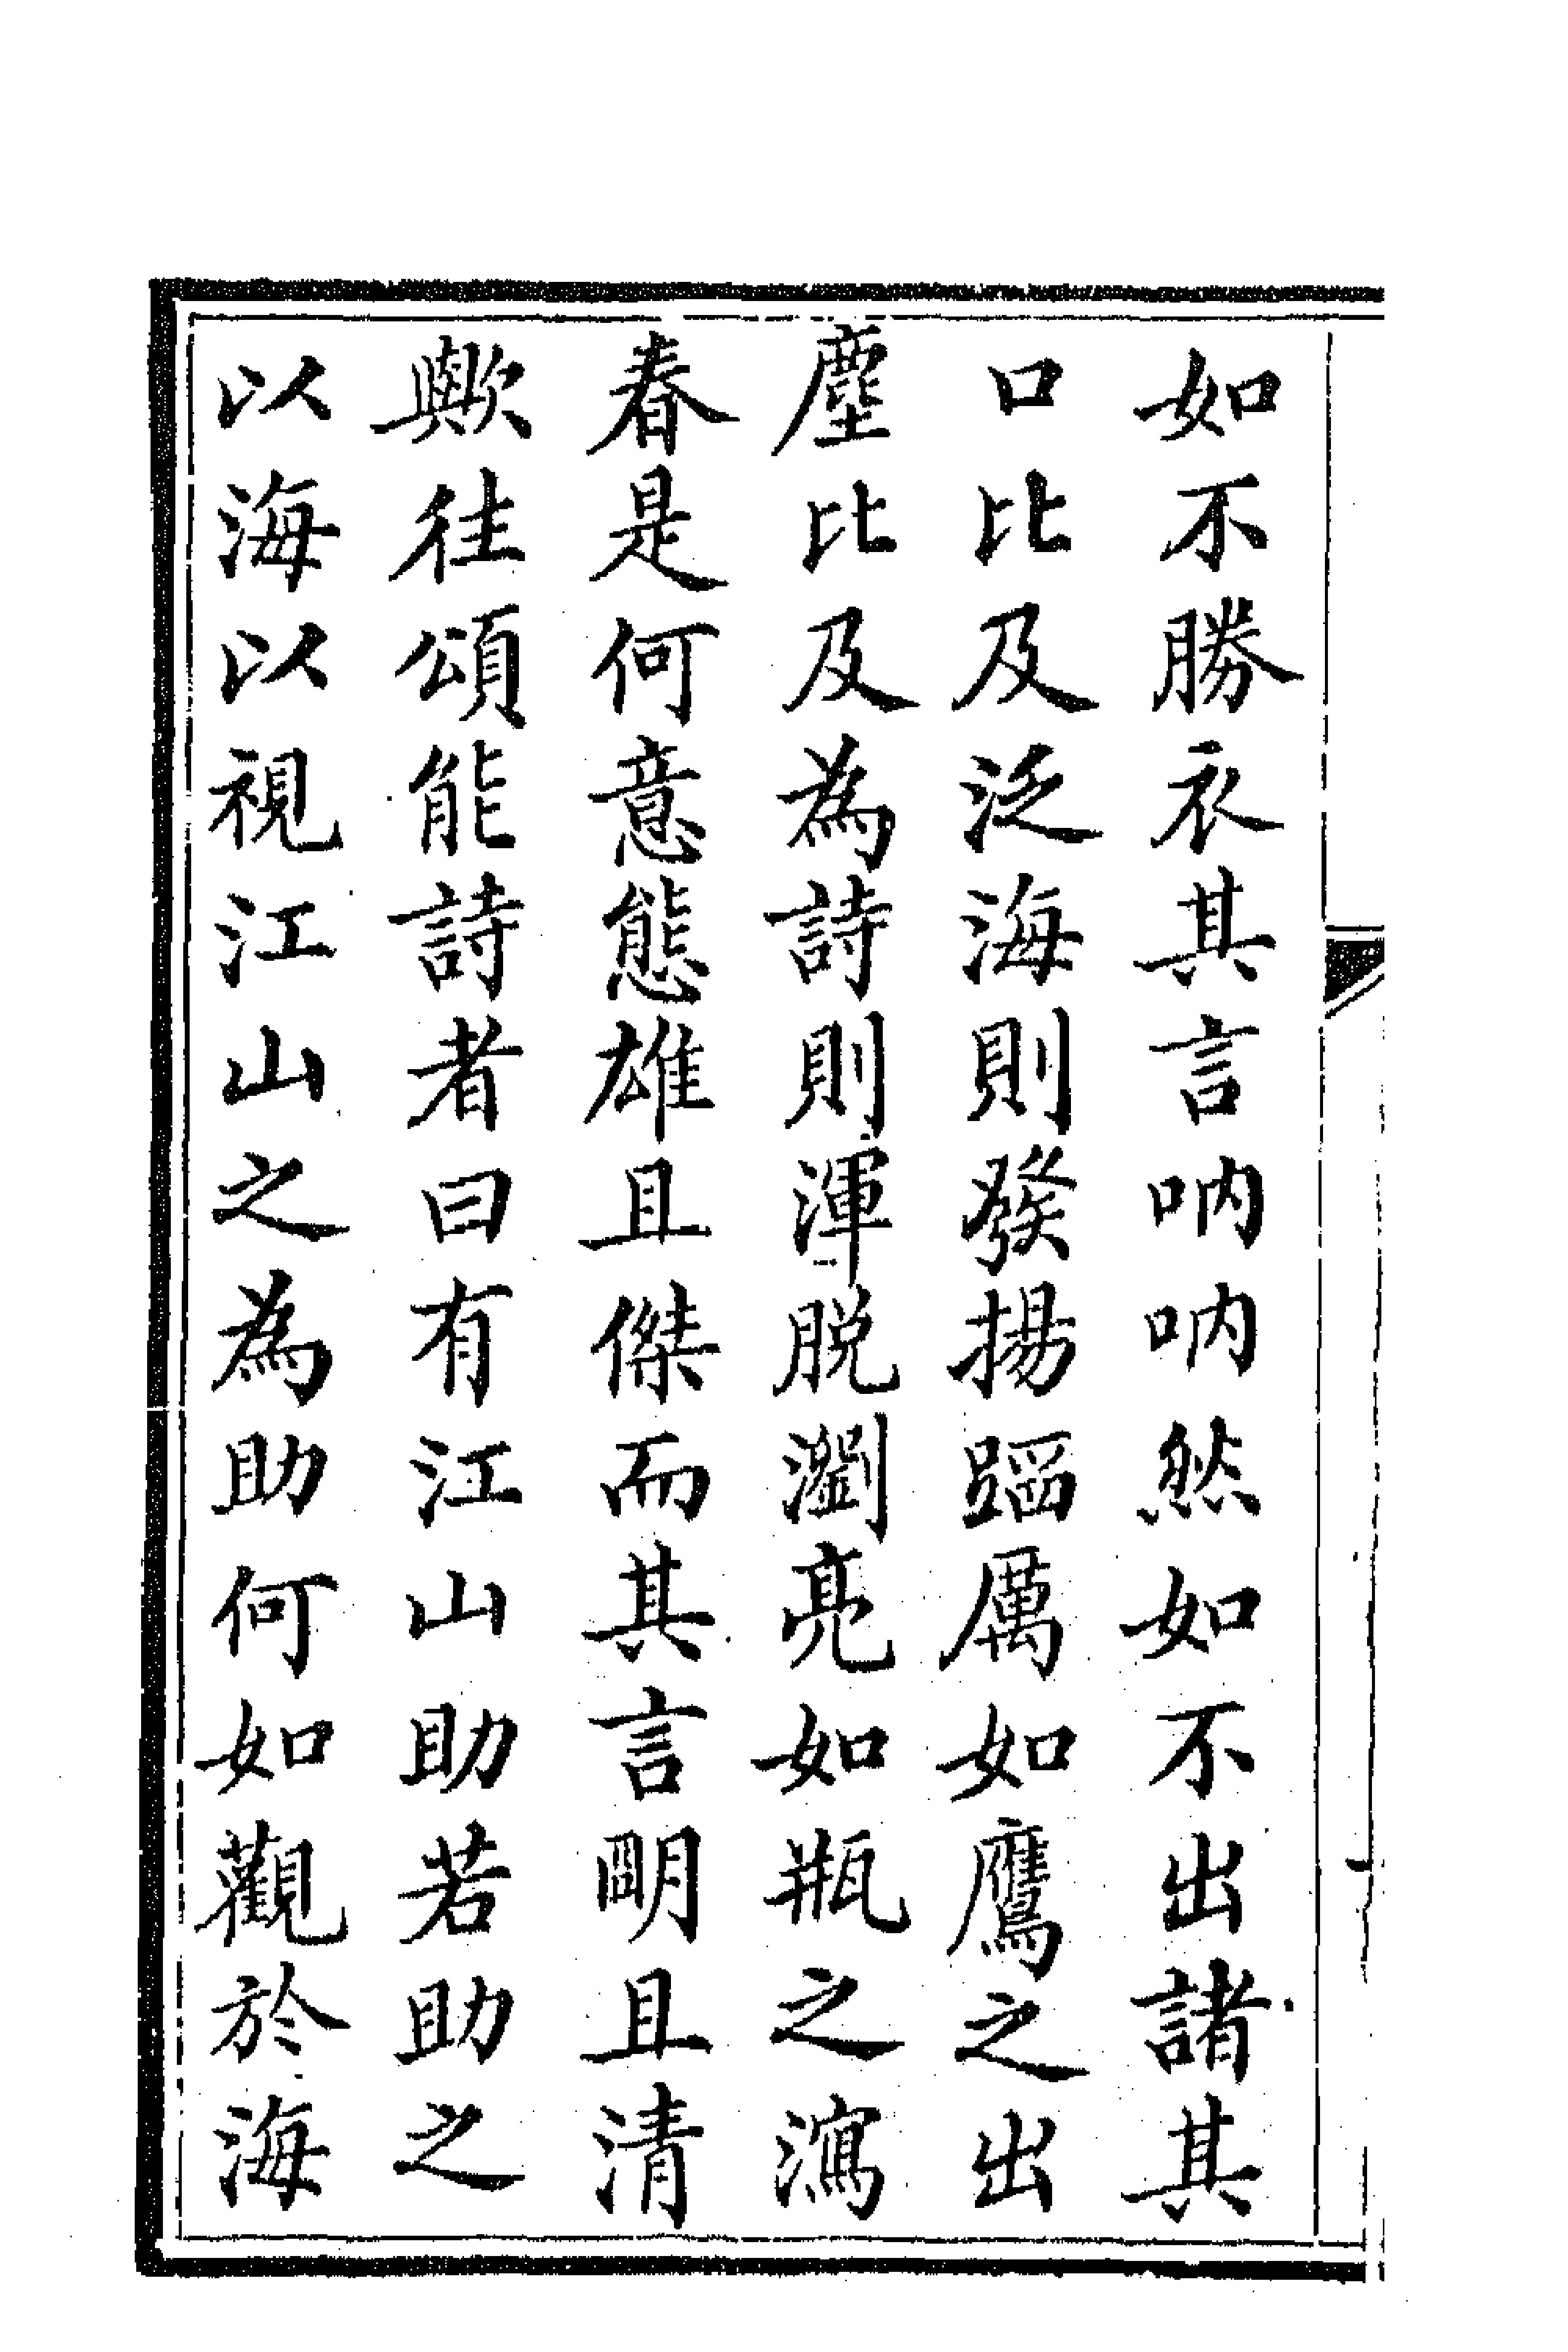 如不勝衣其言吶吶然如不出諸其
口比及泛海則發揚蹈厲如鷹之出
塵比及為詩則渾脱瀏亮如瓶之瀉
春是何意態雄且傑而其言明且清
歟徃頌能詩者曰有江山助若助之
以海以視江山之為助何如觀於海